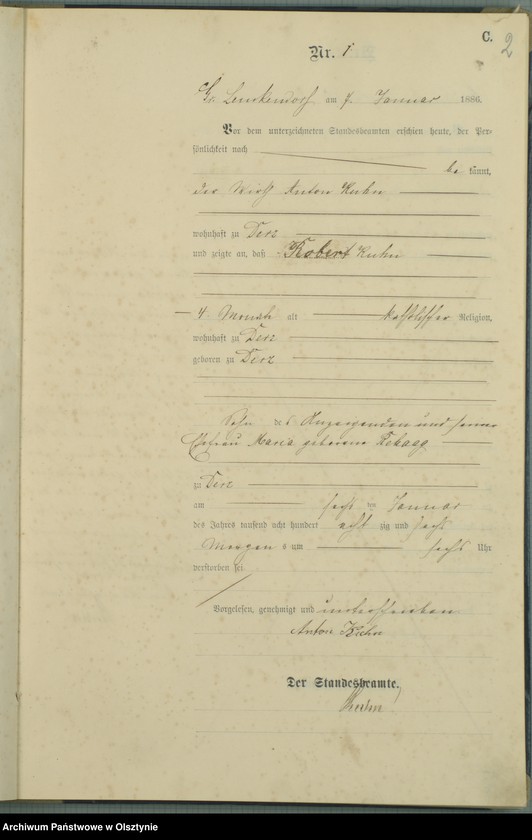 C.
2
Nr. 1
Gr. Lemkendorf am 7. Januar 1886.
Vor dem unterzeichneten Standesbeamten erschien heute, der Per-
sönlichkeit nach
be kannt,
der Wirth Anton Kuhn
wohnhaft zu Derz
und zeigte an, daß Robert Kuhn
4 Monath alt katholischer Religion,
wohnhaft zu Derz
geboren zu Derz
Sohn des Anzeigenden und seiner
Ehefrau Maria geborene
zu Derz
am sechs ten Januar
des Jahres tausend acht hundert acht zig und sechs
Morgens um sechs Uhr
verstorben sei.
Vorgelesen, genehmigt und unterschrieben
Anton Kuhn
Der Standesbeamte.
Archiwum Państwowe w Olsztynie